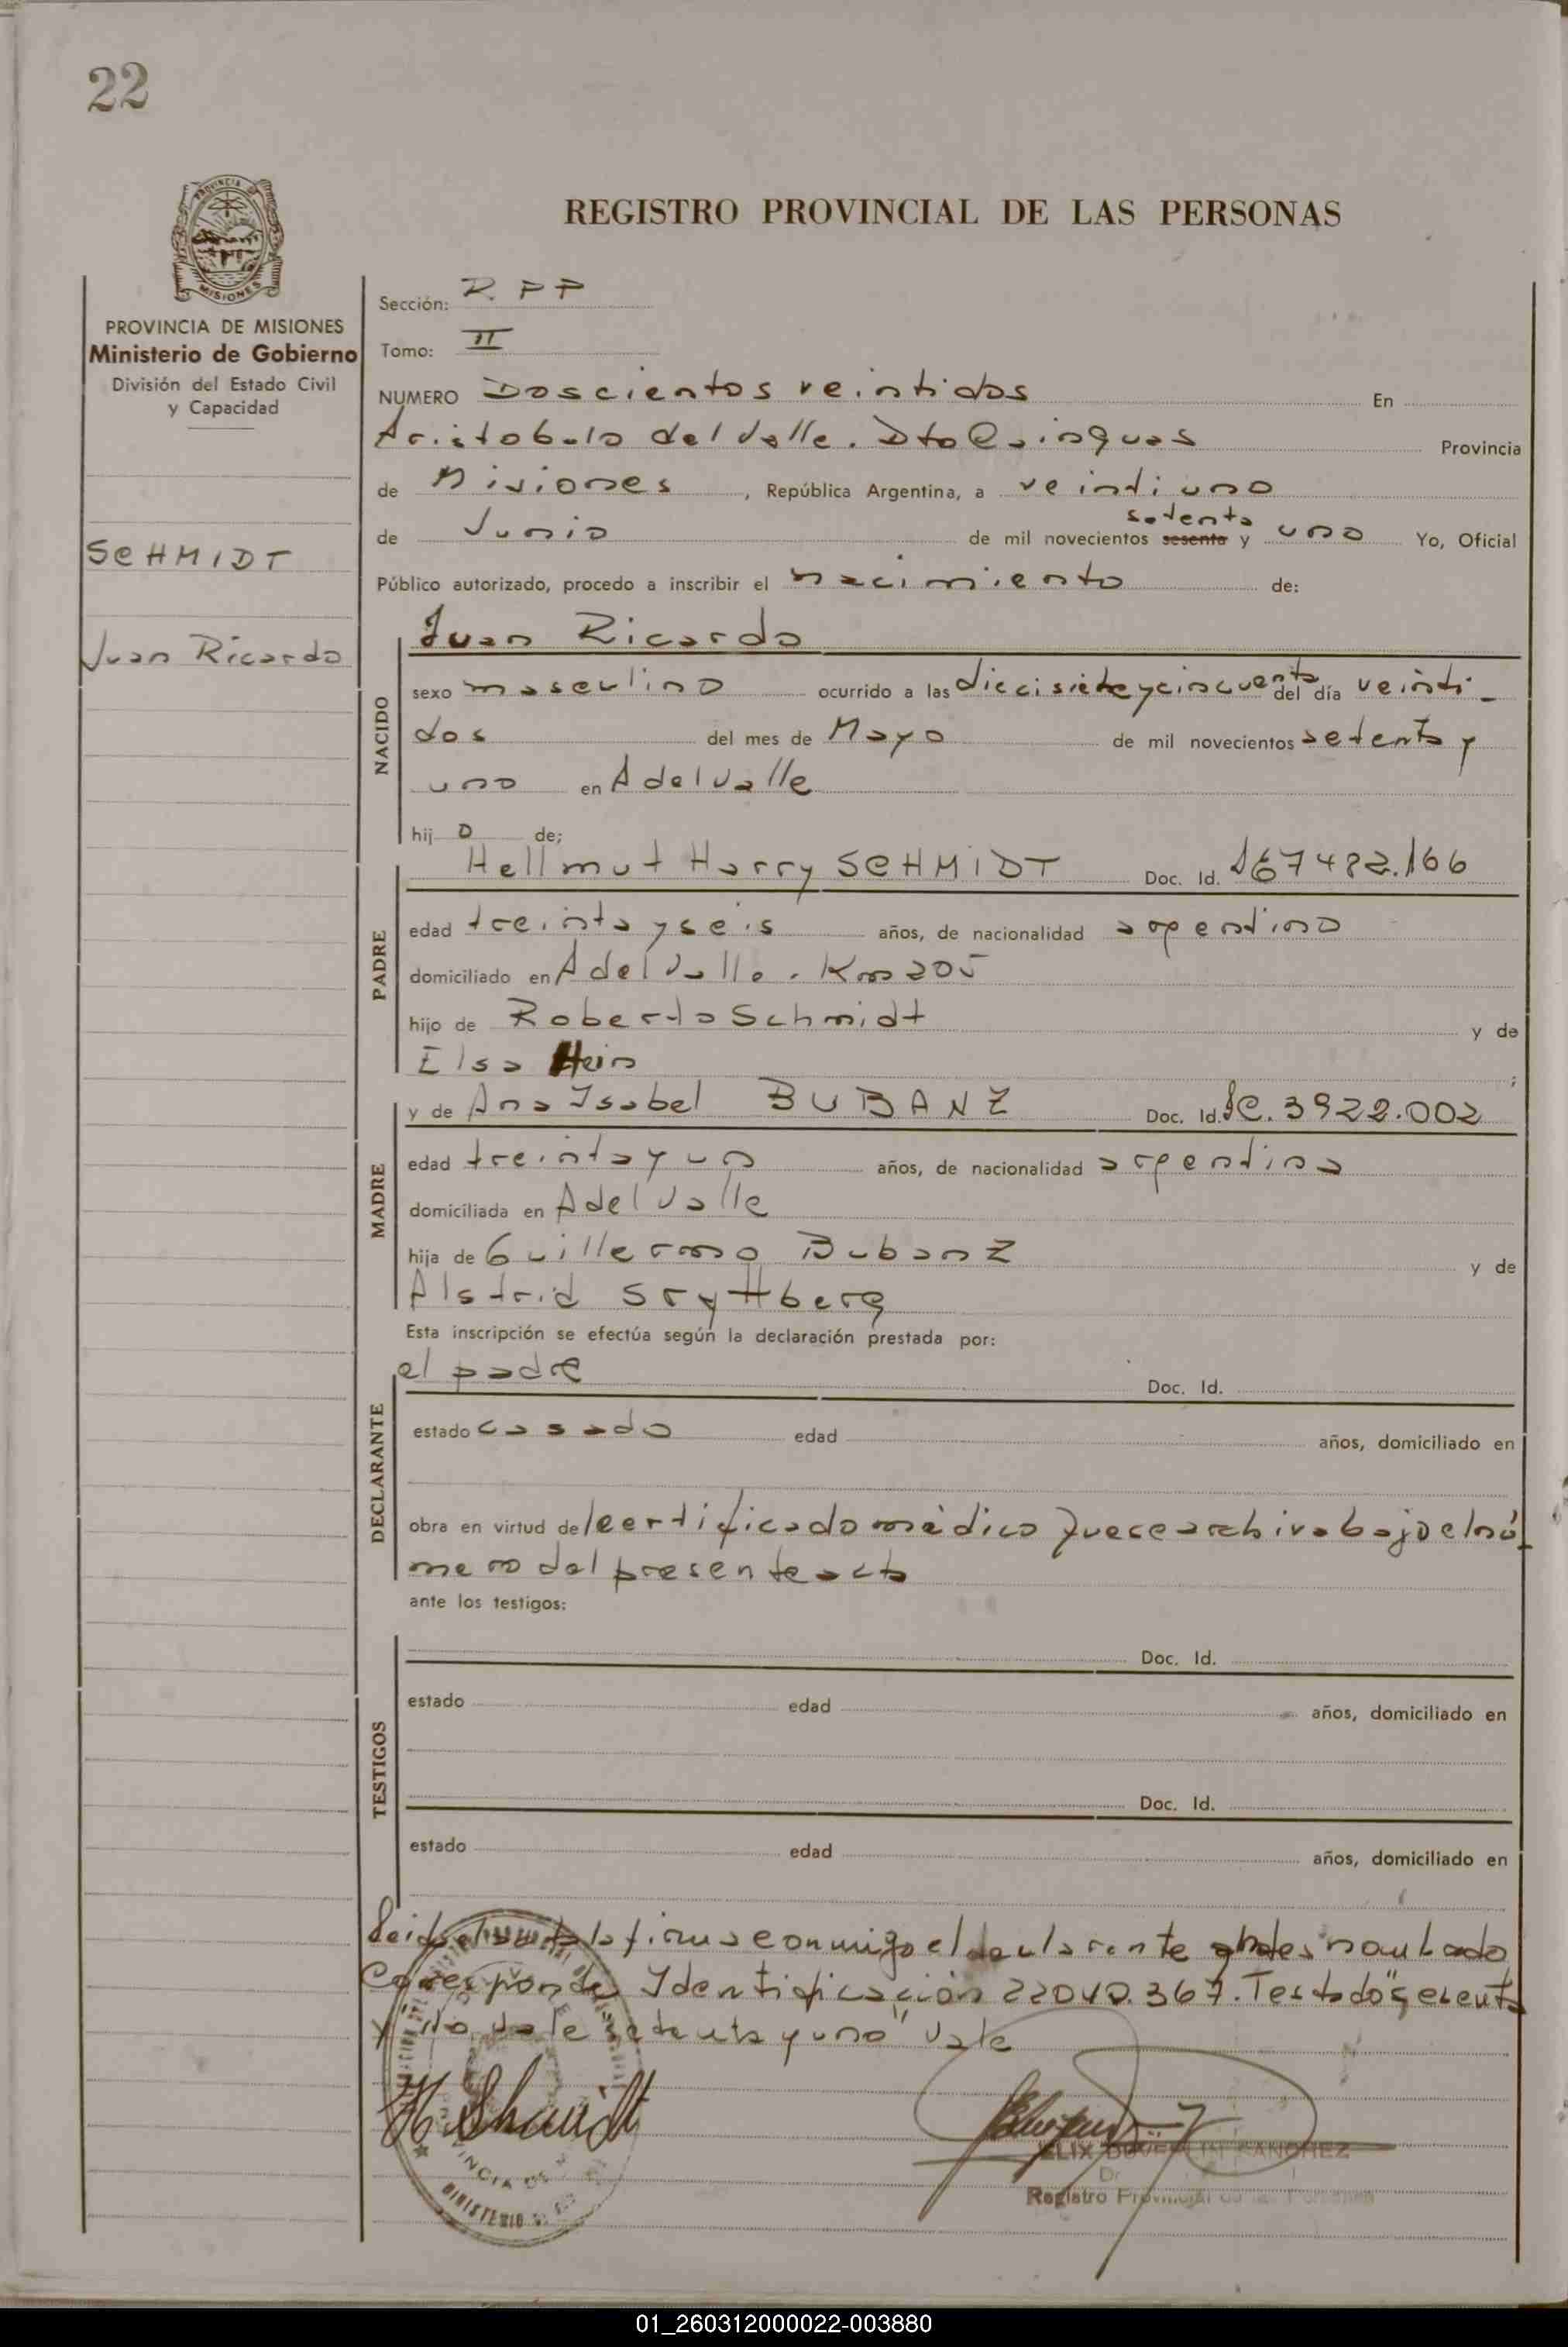 22
REGISTRO PROVINCIAL DE LAS PERSONAS
PROVINCIA
MISIONES
PROVINCIA DE MISIONES
Ministerio de Gobierno
División del Estado Civil
y Capacidad
SCHMIDT
Juan Ricardo
Sección: R P P
Tomo: II
NUMERO Doscientos veintidos En
Aristobulo del Valle. Dto Cainguas Provincia
de Misiones, República Argentina, a veintiuno
de Junio de mil novecientos sesenta setenta y uno Yo, Oficial
Público autorizado, procedo a inscribir el nacimiento de:
NACIDO
Juan Ricardo
sexo masculino ocurrido a las diecisiete y cincuenta del día veinti-
dos del mes de Mayo de mil novecientos setenta y
uno en A del Valle
hij o de;
PADRE
Hellmut Harry SCHMIDT Doc. Id. 7482.166
edad treinta y seis años, de nacionalidad argentino
domiciliado en A del Valle. Km 205
hijo de Roberto Schmidt y de
Elsa Hein ;
MADRE
y de Ana Isabel BUBANZ Doc. Id. LC. 3922.002
edad treinta y un años, de nacionalidad argentina
domiciliada en A del Valle
hija de Guillermo Bubanz y de
Alstrid
Esta inscripción se efectúa según la declaración prestada por:
DECLARANTE
el padre Doc. Id.
estado casado edad años, domiciliado en
obra en virtud del certificado médico que se archiva bajo el nú-
mero del presente acta
ante los testigos:
TESTIGOS
Doc. Id.
estado edad años, domiciliado en
Doc. Id.
estado edad años, domiciliado en
Leida el acta la firma conmigo el declarante antes nombrado
Corresponde Identificación 22040.367. Testado "sesenta
y" no vale "setenta y uno" vale
H Shmidt
SANCHEZ
Registro Provincial de las Personas
MINISTERIO
01_260312000022-003880